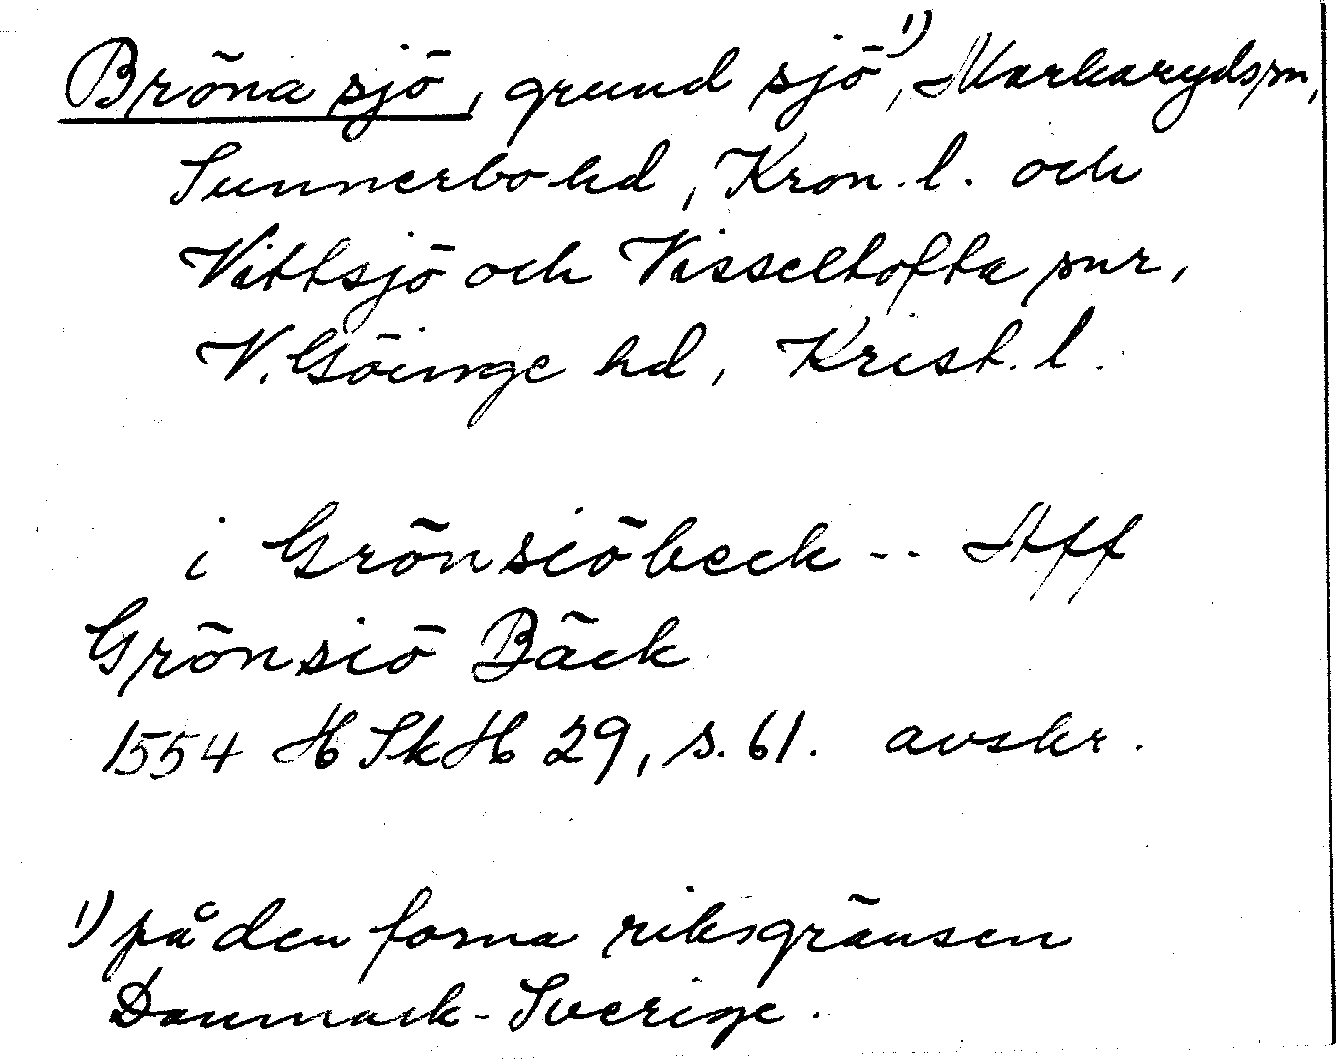 Bröna sjö, grund sjö¹⁾, Markaryds sn,
Sunnerbo hd, Kron. l. och
Vittsjö och Visseltofta snr,
V. Göinge hd, Krist. l.
i Grönsiöbeck -- Aff
Grönsiö Bäck
1554 HSkH 29, s. 61. avskr.
1) på den forna riksgränsen
Danmark - Sverige.